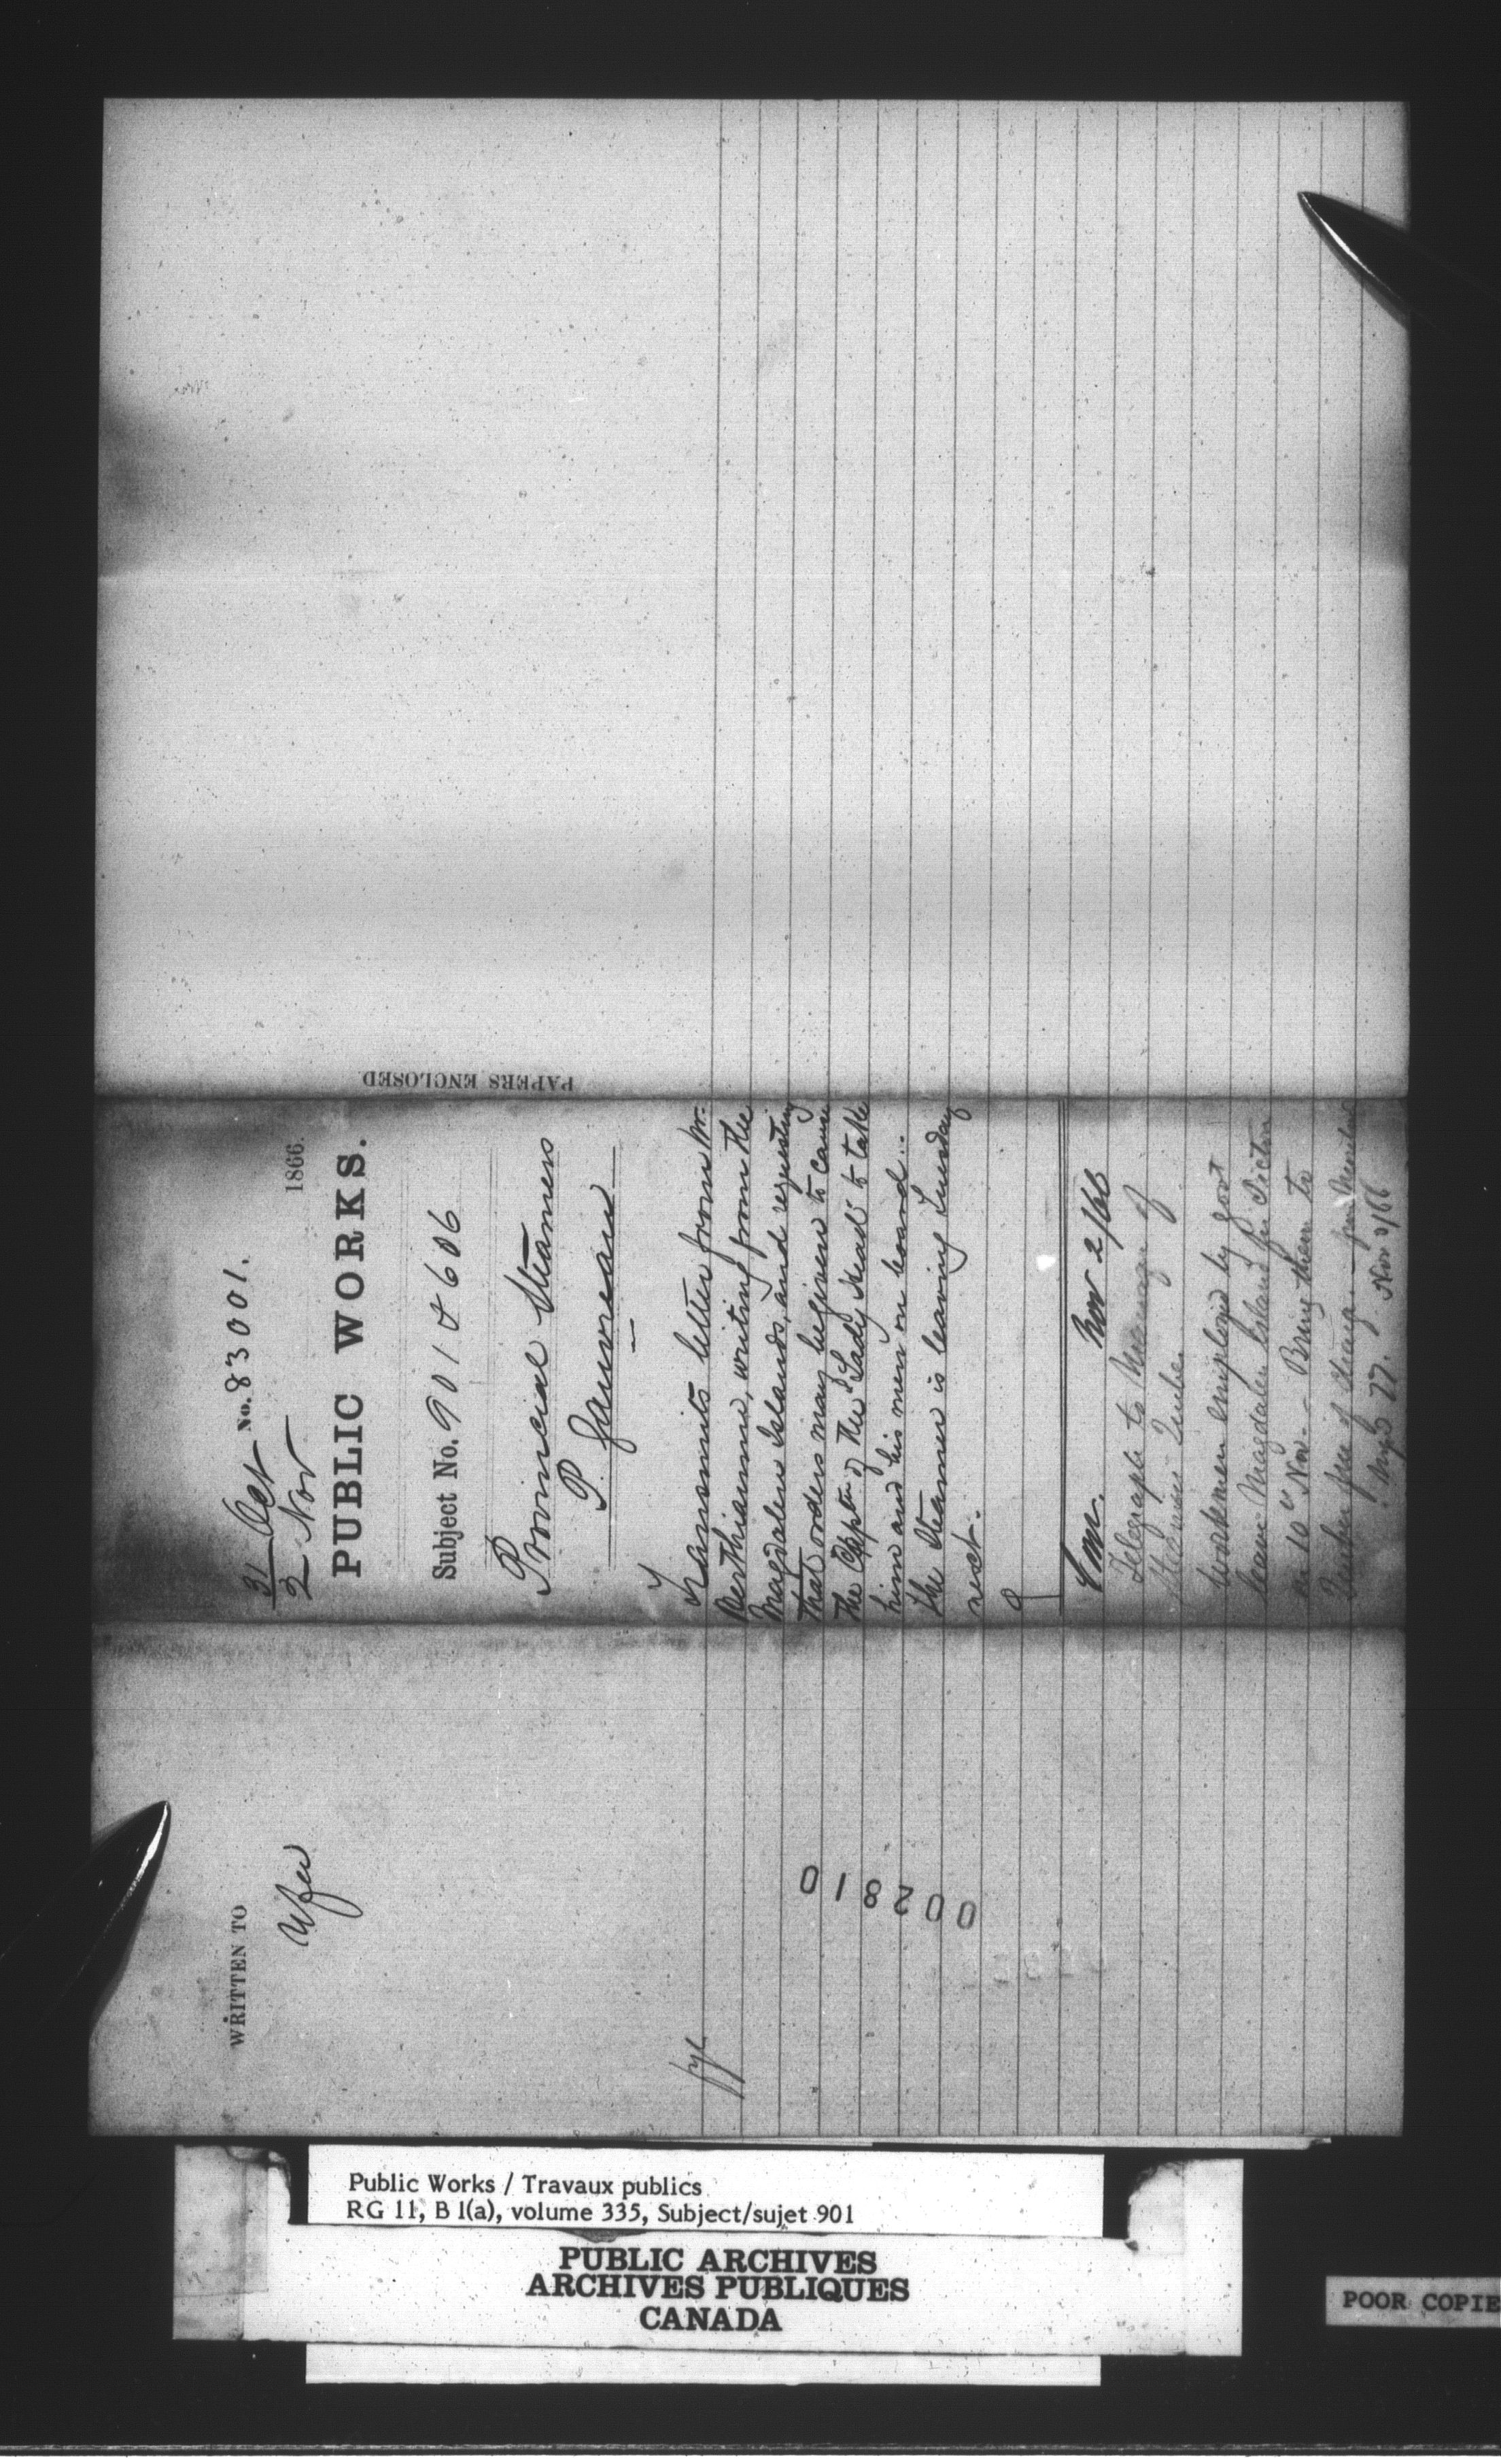 WRITTEN TO
002810
31 Oct No. 83001.
2 Nov 1866.
PUBLIC WORKS.
Subject No. 901 & 606
Provincial Steamers
P. Gauvreau
Transmits letter from Mr.
Berthiaume, writing from the
Magdalen Islands, and requesting
that orders may be given to cause
the Captn of the "Lady Head" to take
him and his men on board..
the Steamer is leaving Tuesday
next.
Nov 2/66
Telegraph to Manager of
Steamers Quebec.
Workmen employed by govt
leave Magdalen Island for Pictou
on 10th Nov. - Bring them to
Quebec free of charge.
Nov 2/66
PAPERS ENCLOSED
Public Works / Travaux publics
RG 11, B 1(a), volume 335, Subject/sujet 901
PUBLIC ARCHIVES
ARCHIVES PUBLIQUES
CANADA
POOR COPIE